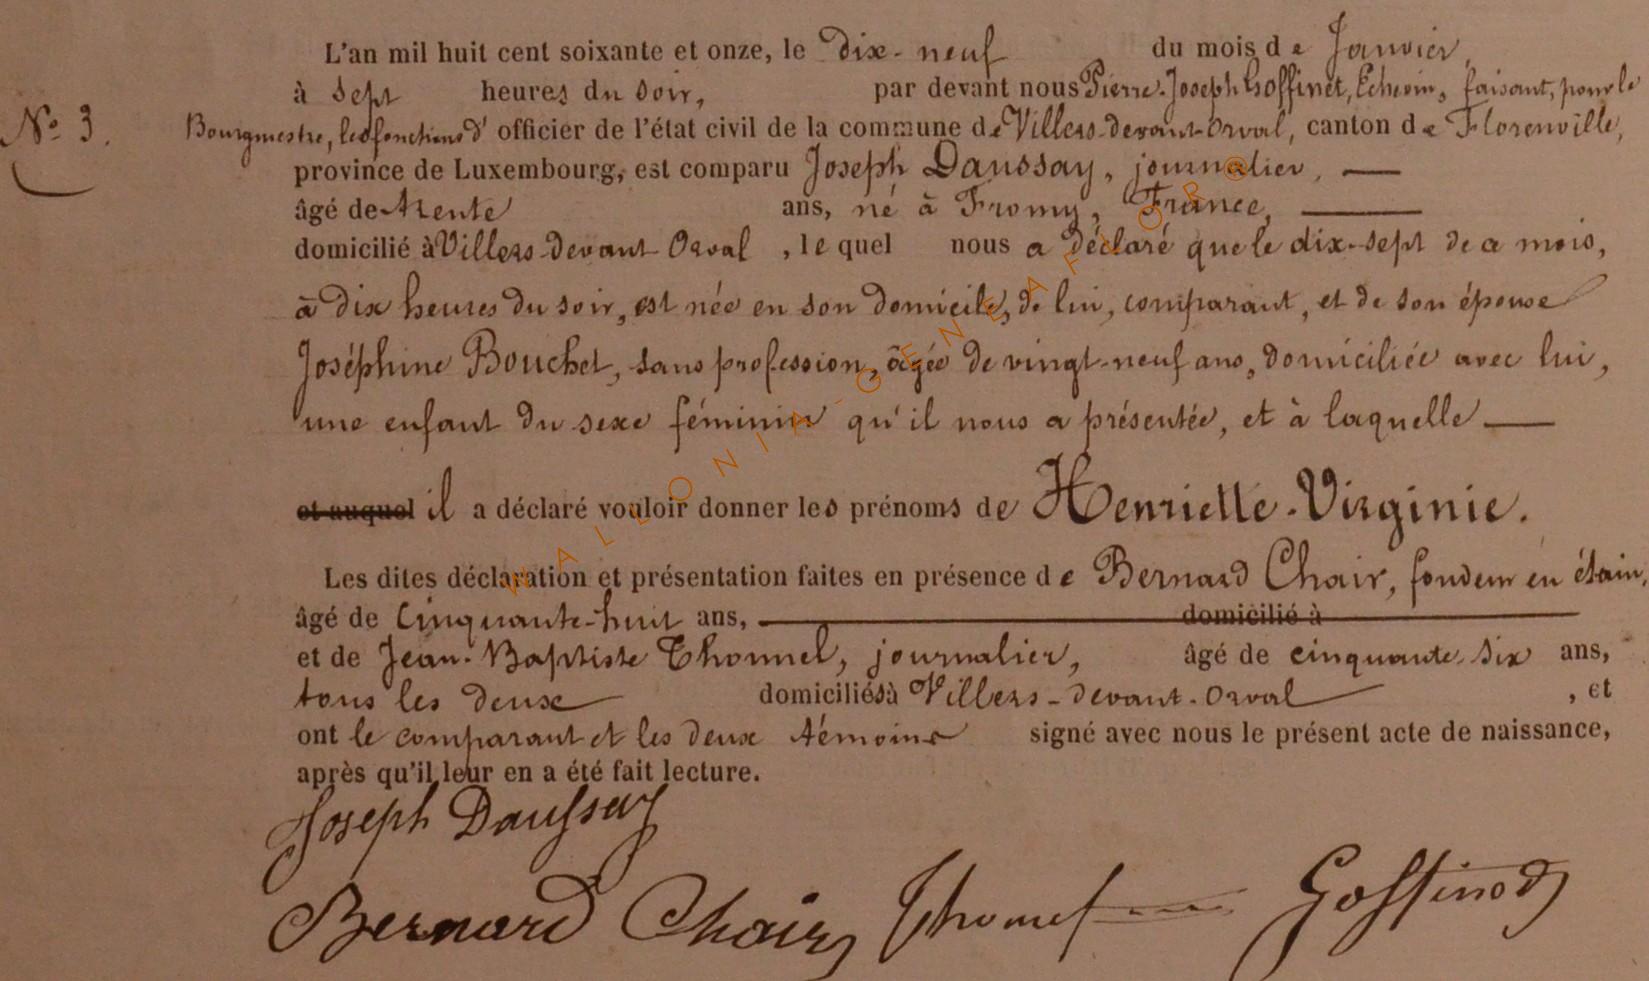 L'an mil huit cent soixante et onze, le dix-neuf du mois de Janvier,
à sept heures du soir, par devant nous Pierre-Joseph Goffinet, Echevin, faisant, pour le
N° 3. Bourgmestre, les fonctions d' officier de l'état civil de la commune de Villers-devant-Orval, canton de Florenville,
province de Luxembourg, est comparu Joseph Daussay, journalier,
âgé de trente ans, né à Fromy, France,
domicilié à Villers-devant-Orval, lequel nous a déclaré que le dix-sept de ce mois,
à dix heures du soir, est née en son domicile, de lui, comparant, et de son épouse
Joséphine Bouchet, sans profession, âgée de vingt-neuf ans, domiciliée avec lui,
une enfant du sexe féminin qu'il nous a présentée, et à laquelle
et auquel il a déclaré vouloir donner les prénoms de Henriette-Virginie.
Les dites déclaration et présentation faites en présence de Bernard Chair, fondeur en étain,
âgé de cinquante-huit ans, domicilié à
et de Jean-Baptiste Thonnel, journalier, âgé de cinquante-six ans,
tous les deux domiciliés à Villers-devant-Orval, et
ont le comparant et les deux témoins signé avec nous le présent acte de naissance,
après qu'il leur en a été fait lecture.
Joseph Daussay
Bernard Chair Thonnel Goffinet
WALLONIA-GENEAFLOR@